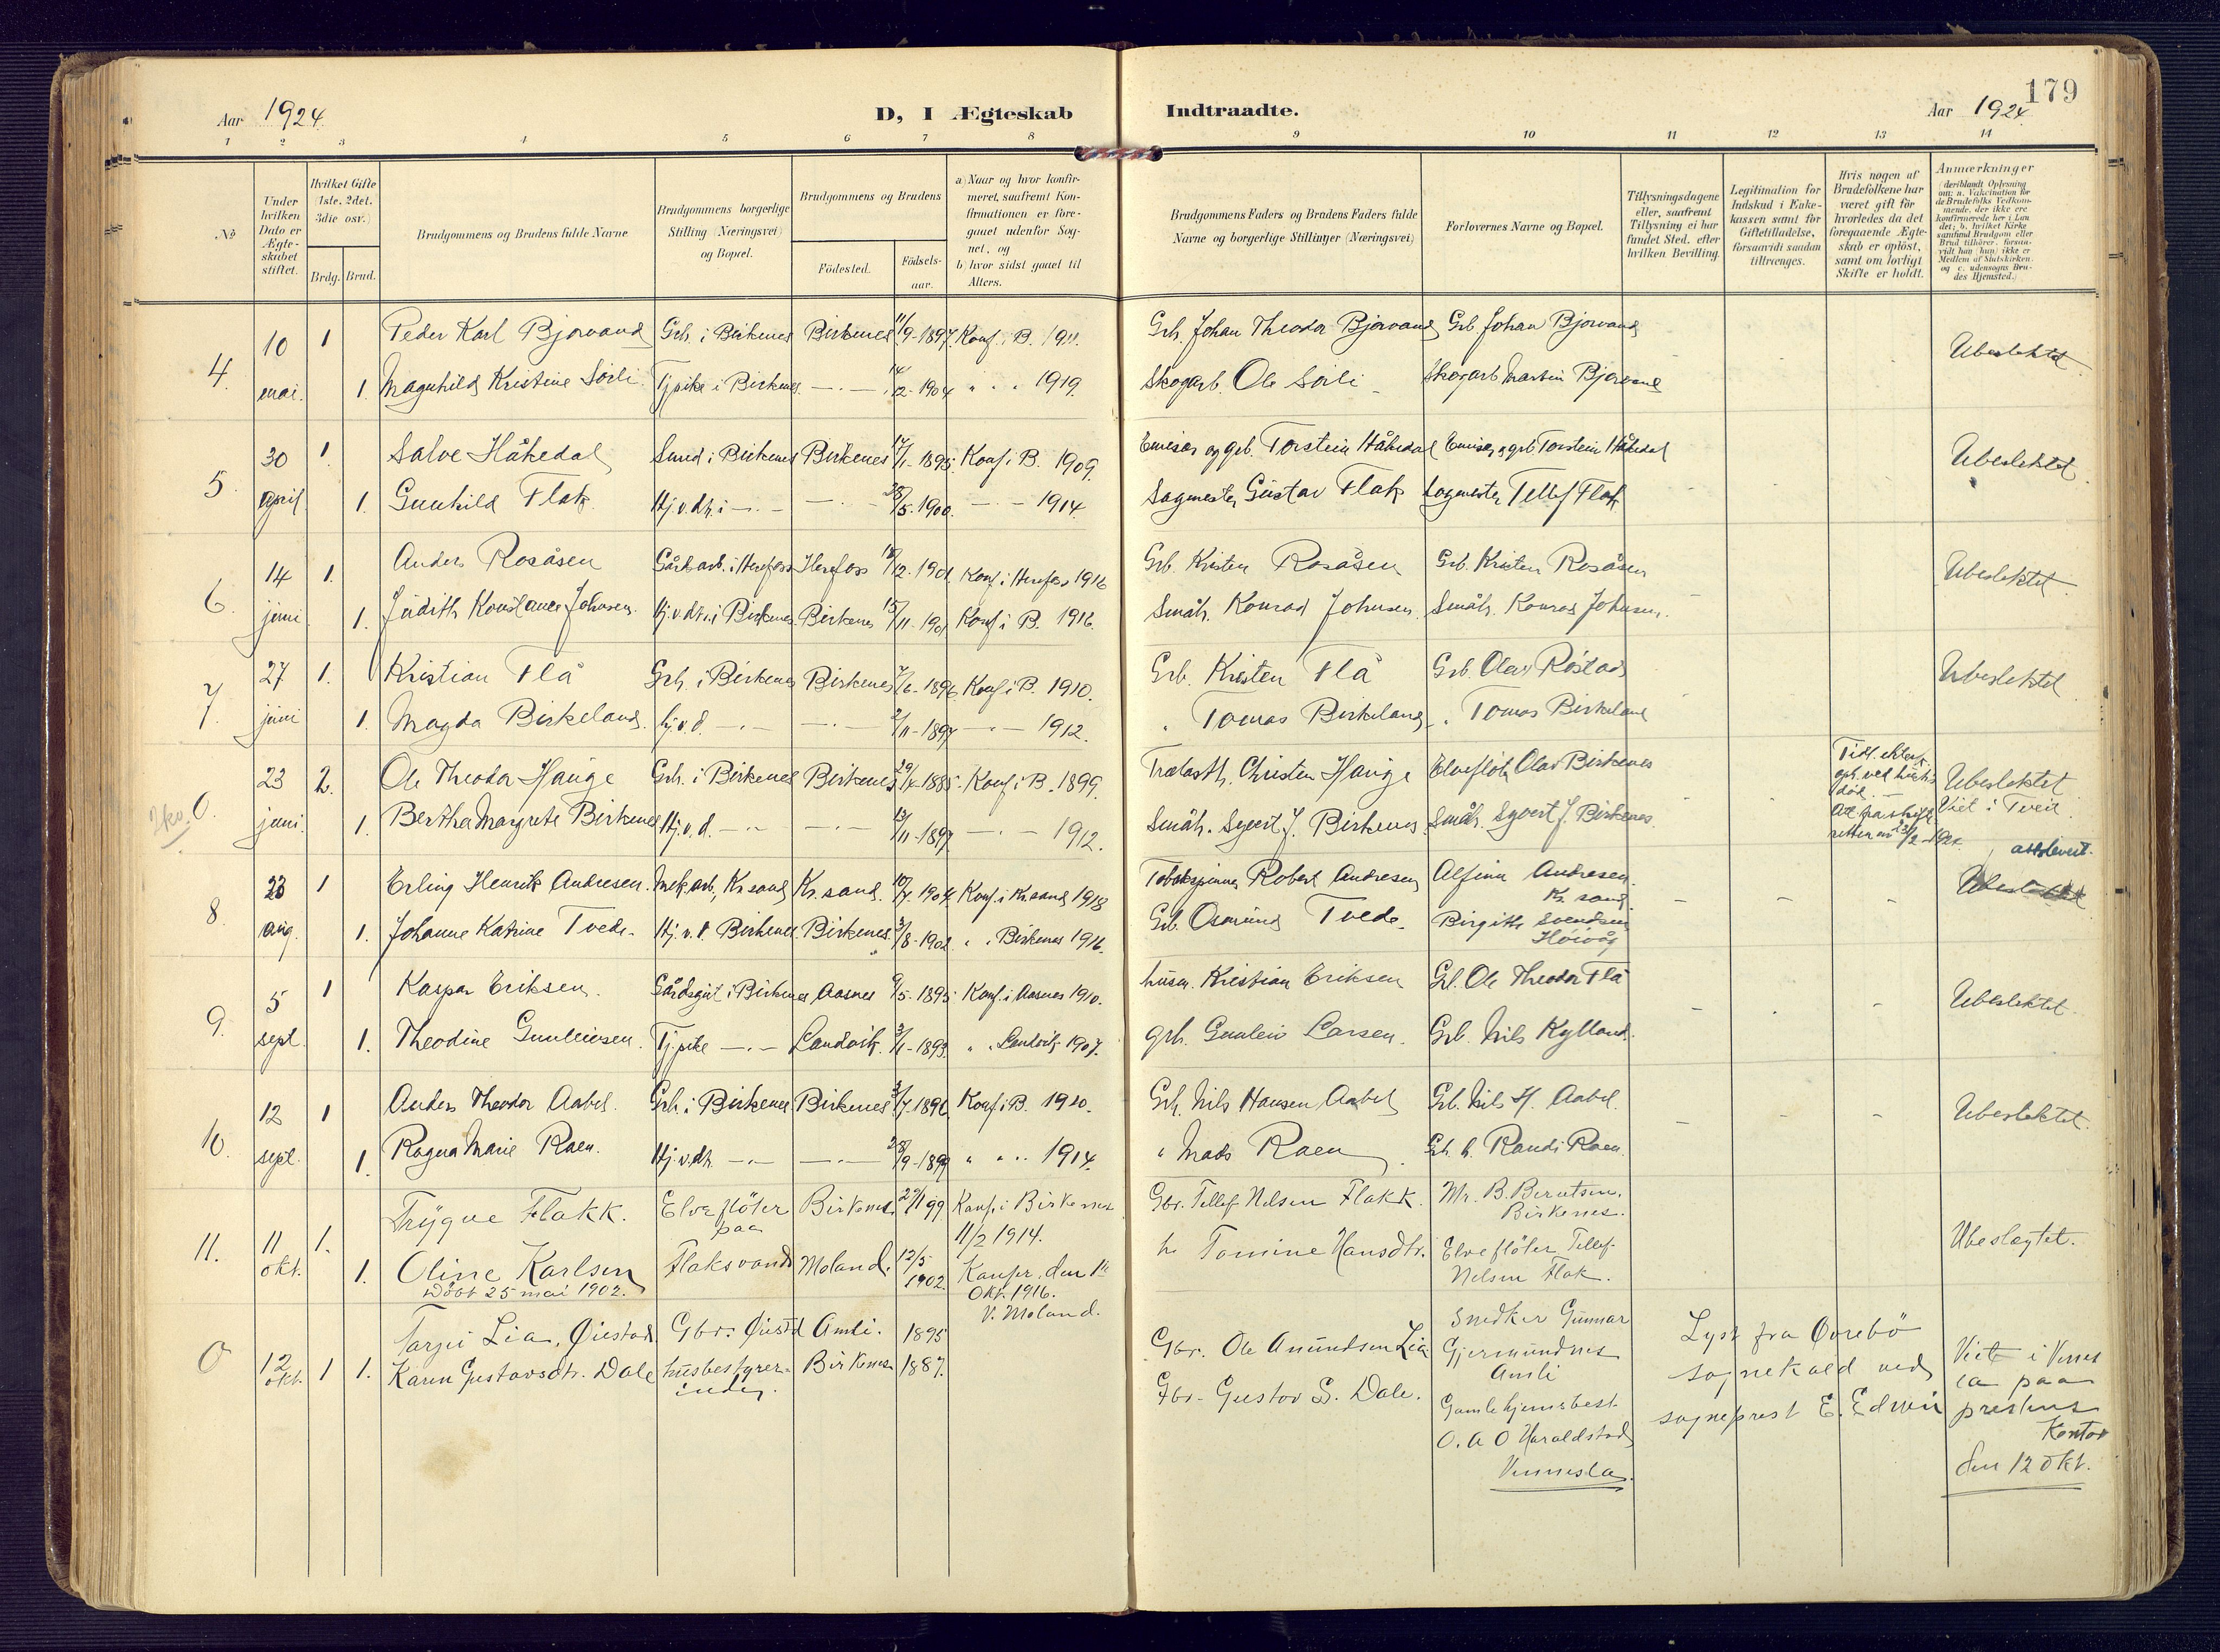 Aar 1924
D, I Ægteskab
Indtraadte.
179
Aar 1924
1 2 3 4 5 6 7 8 9 10 11 12 13 14
No
Under hvilken Dato er Ægteskabet stiftet.
Hvilket Gifte (1ste, 2det, 3die osv.)
Brdg. Brud.
Brudgommens og Brudens fulde Navne
Brudgommens borgerlige Stilling (Næringsvei) og Bopæl.
Brudgommens og Brudens
Födested. Födselsaar.
a) Naar og hvor konfirmeret, saafremt Konfirmationen er foregaaet udenfor Sognet, og
b) hvor sidst gaaet til Alters.
Brudgommens Faders og Brudens Faders fulde Navne og borgerlige Stillinger (Næringsvei)
Forlovernes Navne og Bopæl.
Tillysningsdagene eller, saafremt Tillysning ei har fundet Sted, efter hvilken Bevilling.
Legitimation for Indskud i Enkekassen samt for Giftetilladelse, forsaavidt saadan tiltrænges.
Hvis nogen af Brudefolkene har været gift för hvorledes da det foregaaende Ægteskab er oplöst, samt om lovligt Skifte er holdt.
Anmærkninger
4. 10 mai. 1 Peder Karl Bjorvand Grb. i Birkenes Birkenes 11/9-1897. Konf. i B. 1911. Grb. Johan Theodor Bjorvand Grb. Johan Bjorvand Ubeslektet
1. Magnhild Kristine Sörli Tjpike i Birkenes. 14/12-1904 " . . 1919. Skogarb. Ole Sörli Skogarb. Martin Bjorvand
5. 30 april 1. Salve Håkedal Smed i Birkenes Birkenes 17/1-1895 Konf. i B. 1909. Emisær og grb. Torstein Håkedal Emisær og grb. Torstein Håkedal Ubeslektet
1. Gunhild Flak Hj.v.dh. i 28/5-1900. 1914. Sagmester Gustav Flak Sagmester Tellef Flak
6. 14 juni 1. Anders Rosåsen Gårdsarb. i Herefoss Herefoss 18/12-1901 Konf. i Herefoss 1916 Grb. Kristen Rosåsen Grb. Kristen Rosåsen Ubeslektet.
1. Judith Konstance Johnsen. Hj.v.dh. i Birkenes. Birkenes 15/11-1901 Konf. i B. 1916. Småbr. Konrad Johnsen. Småbr. Konrad Johnsen.
7. 27 juni 1. Kristian Flå Grb. i Birkenes Birkenes 7/6-1896 Konf. i B. 1910. Grb. Kristen Flå Grb. Olav Röstad Ubeslektet
1. Magda Birkeland. Hj.v.d. 2/11-1897 1912. " Tomas Birkeland " Tomas Birkeland
0. 23 juni 2. Ole Theodor Hauge Grb. i Birkenes Birkenes 29/4-1885. Konf. i B. 1899. Trælasth. Christen Hauge Elveflöter Olav Birkenes Ubeslektet Viet i Tveit
1. Bertha Margrete Birkenes Hj.v.d. 13/11-1897 1912. Småbr. Syvert J. Birkenes Småbr. Syvert J. Birkenes.
8 23 aug. 1 Erling Henrik Andresen. Mek.arb., Kr.sand Kr.sand. 10/7 1904 Konf. i Kr.sand 1918 Tobakspinner Robert Andresen Alfinn Andresen Kr. sand. Ubeslektet
1. Johanne Katrine Tvede. Hj.v.d. Birkenes Birkenes. 3/8-1902 " . Birkenes 1916. Grb. Osmund Tvede. Birgith Svendsen Höivåg
9. 5 sept. 1 Kaspar Eriksen. Gårdsgut i Birkenes Aasnes 9/5-1895 Konf. i Aasnes 1910. husm. Kristian Eriksen Grb. Ole Theodor Flå Ubeslektet.
1. Theodine Gunleiesen. Tj.pike Landvik. 3/1-1893 " . Landvik 1907. grb. Gunleiv Larsen. Grb. Nils Kylland.
10 12 sept. 1 Anders Theodor Aabel. Grb. i Birkenes. Birkenes 3/7-1896 Konf. i B. 1910. Grb. Nils Hansen Aabel Grb. Nils H. Aabel. Ubeslektet.
1. Ragna Marie Raen. Hj.v.dh. 28/9-1899 " . . 1914. " Mads Raen Randi Raen.
11. 11 okt. 1. Trygve Flakk. Elvefløter paa Flaksvand Birkenes 29/1 99 Konf. i Birkenes 11/2 1914. Gbr. Tellef Nilsen Flakk. Mr. B. Berntsen. Birkenes. Ubeslegtet.
1. Oline Karlsen Döbt 25 mai 1902. Moland. 12/5 1902. Konfir. den 1te Okt. 1916. V. Moland. Tomine Hansdtr. Elvefløter Tellef Nilsen Flak.
0 12 okt. 1 Targei Lia, Øiestad Gbr. Øiestd Amli. 1895 Gbr. Ole Anundsen Lia Snedker Gunnar Gjermundnes Amli
1. Karen Gustavsdtr. Dale husbestyrerinde. Birkenes 1887. Gbr. Gustav S. Dale. Gamlehjemsbest. O. A O Haraldstad Vennesla.
Lyst fra Øvrebö sognekald ved sogneprest E. Edwin
Viet i Vennesla paa prestens Kontor den 12 okt.